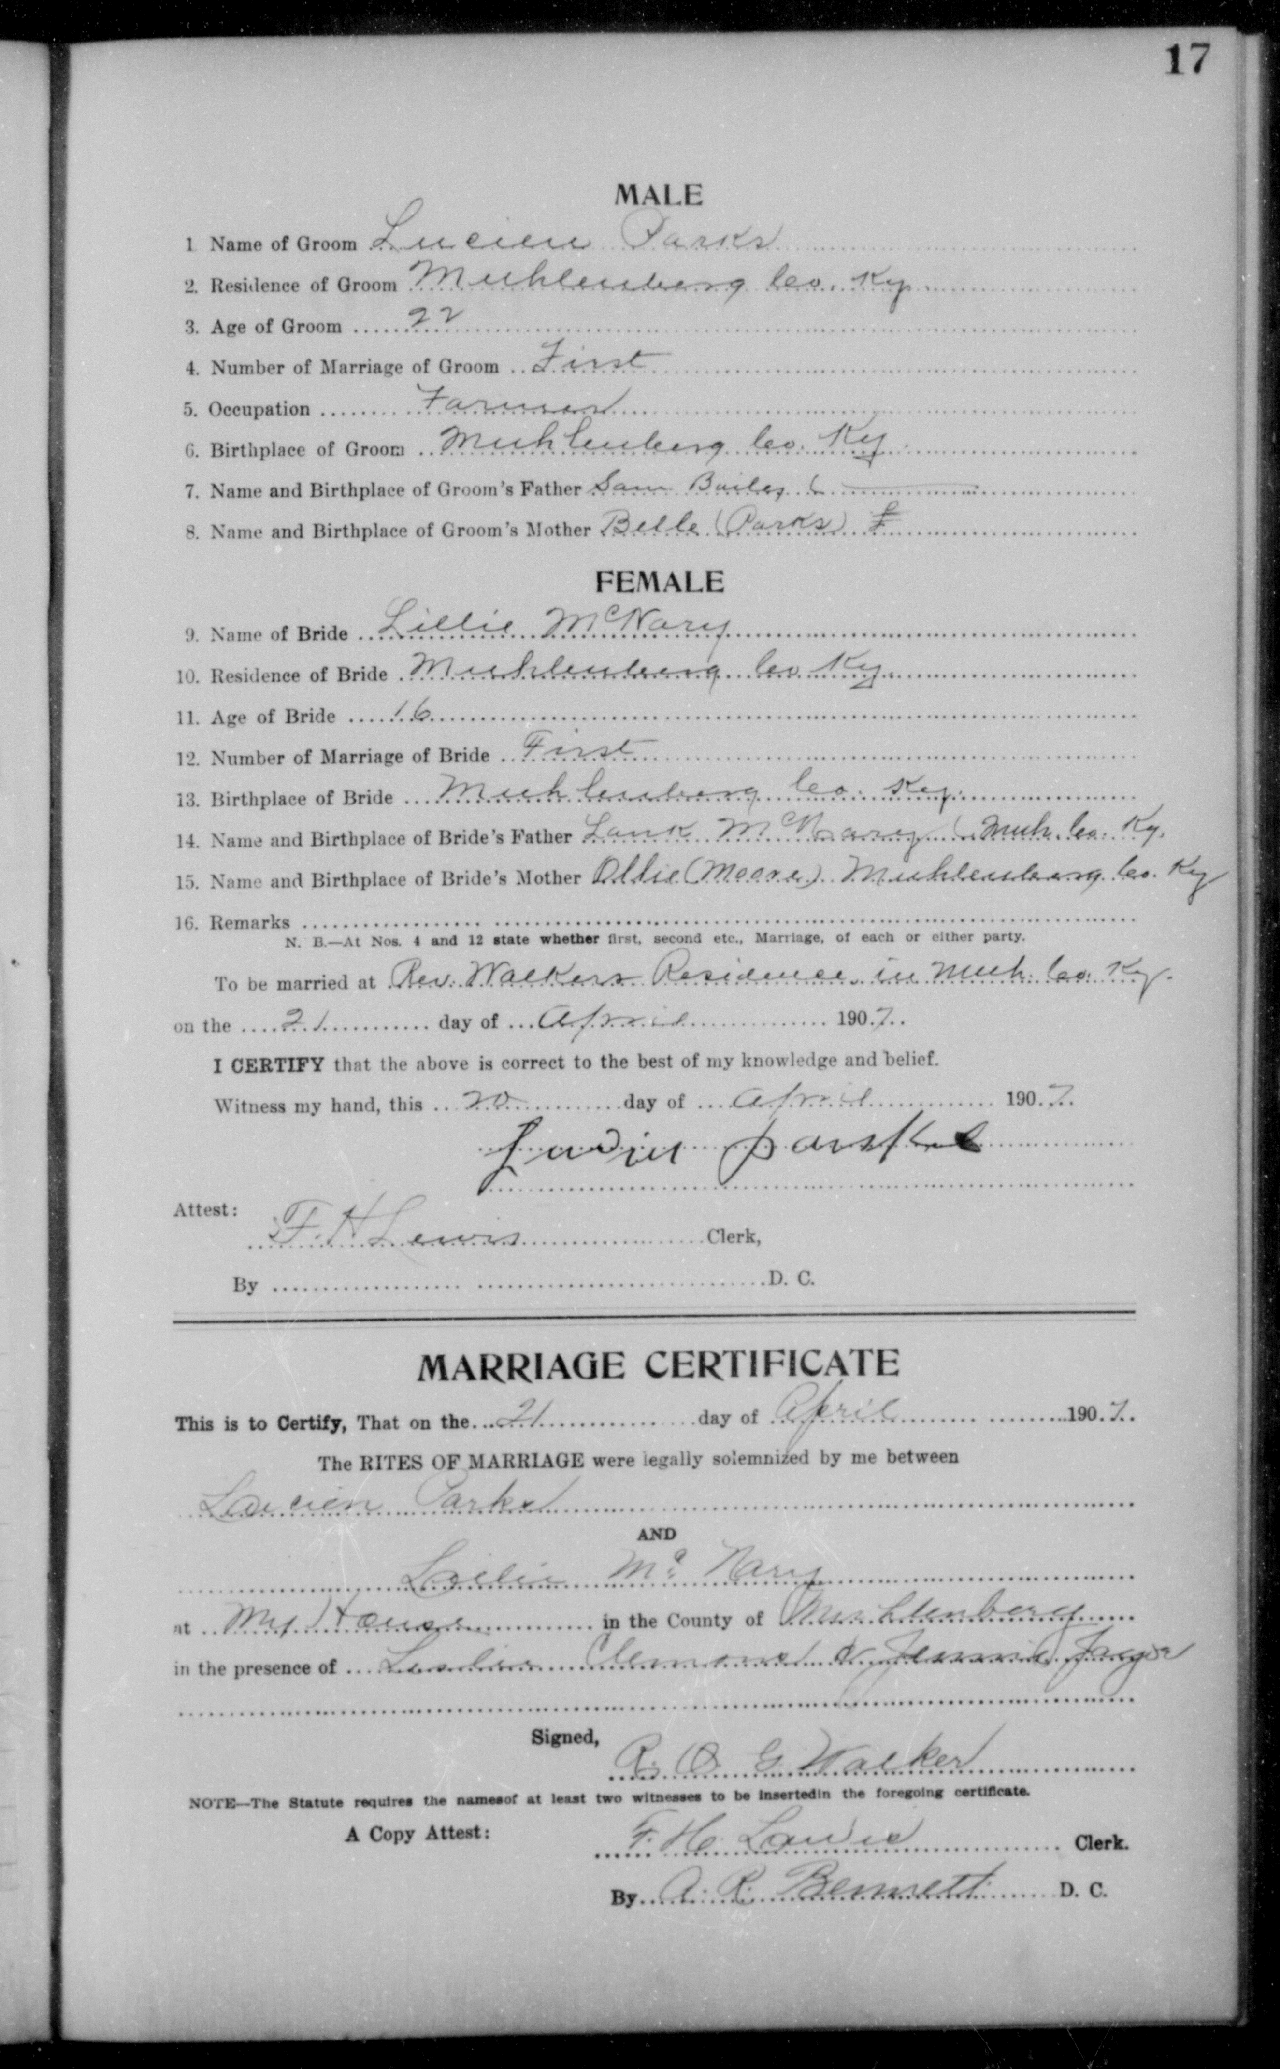 17
MALE
1 Name of Groom Lucien Parks
2. Residence of Groom Muhlenberg Co. Ky
3. Age of Groom 22
4. Number of Marriage of Groom First
5. Occupation Farmer
6. Birthplace of Groom Muhlenberg Co. Ky
7. Name and Birthplace of Groom's Father Sam Bailey (
8. Name and Birthplace of Groom's Mother Belle (Parks)
FEMALE
9. Name of Bride Lillie McNary
10. Residence of Bride Muhlenberg Co Ky
11. Age of Bride 16
12. Number of Marriage of Bride First
13. Birthplace of Bride Muhlenberg Co. Ky.
14. Name and Birthplace of Bride's Father Lank McNary (Muh. Co. Ky.
15. Name and Birthplace of Bride's Mother Ollie (Moore) Muhlenberg Co. Ky
16. Remarks
N. B.—At Nos. 4 and 12 state whether first, second etc., Marriage, of each or either party.
To be married at Rev. Walkers Residence in Muh. Co. Ky.
on the 21 day of April 1907.
I CERTIFY that the above is correct to the best of my knowledge and belief.
Witness my hand, this 20 day of April 1907.
Attest:
F. H Lewis Clerk,
By D. C.
MARRIAGE CERTIFICATE
This is to Certify, That on the 21 day of April 1907.
The RITES OF MARRIAGE were legally solemnized by me between
Lucien Parks
AND
Lillie Mc Nary
at My House in the County of Muhlenberg
in the presence of Leslie Clemons & Jennie
Signed,
R. O. G Walker
NOTE—The Statute requires the namesof at least two witnesses to be insertedin the foregoing certificate.
A Copy Attest:
F. H. Lewis Clerk.
By A. R. Bennett D. C.